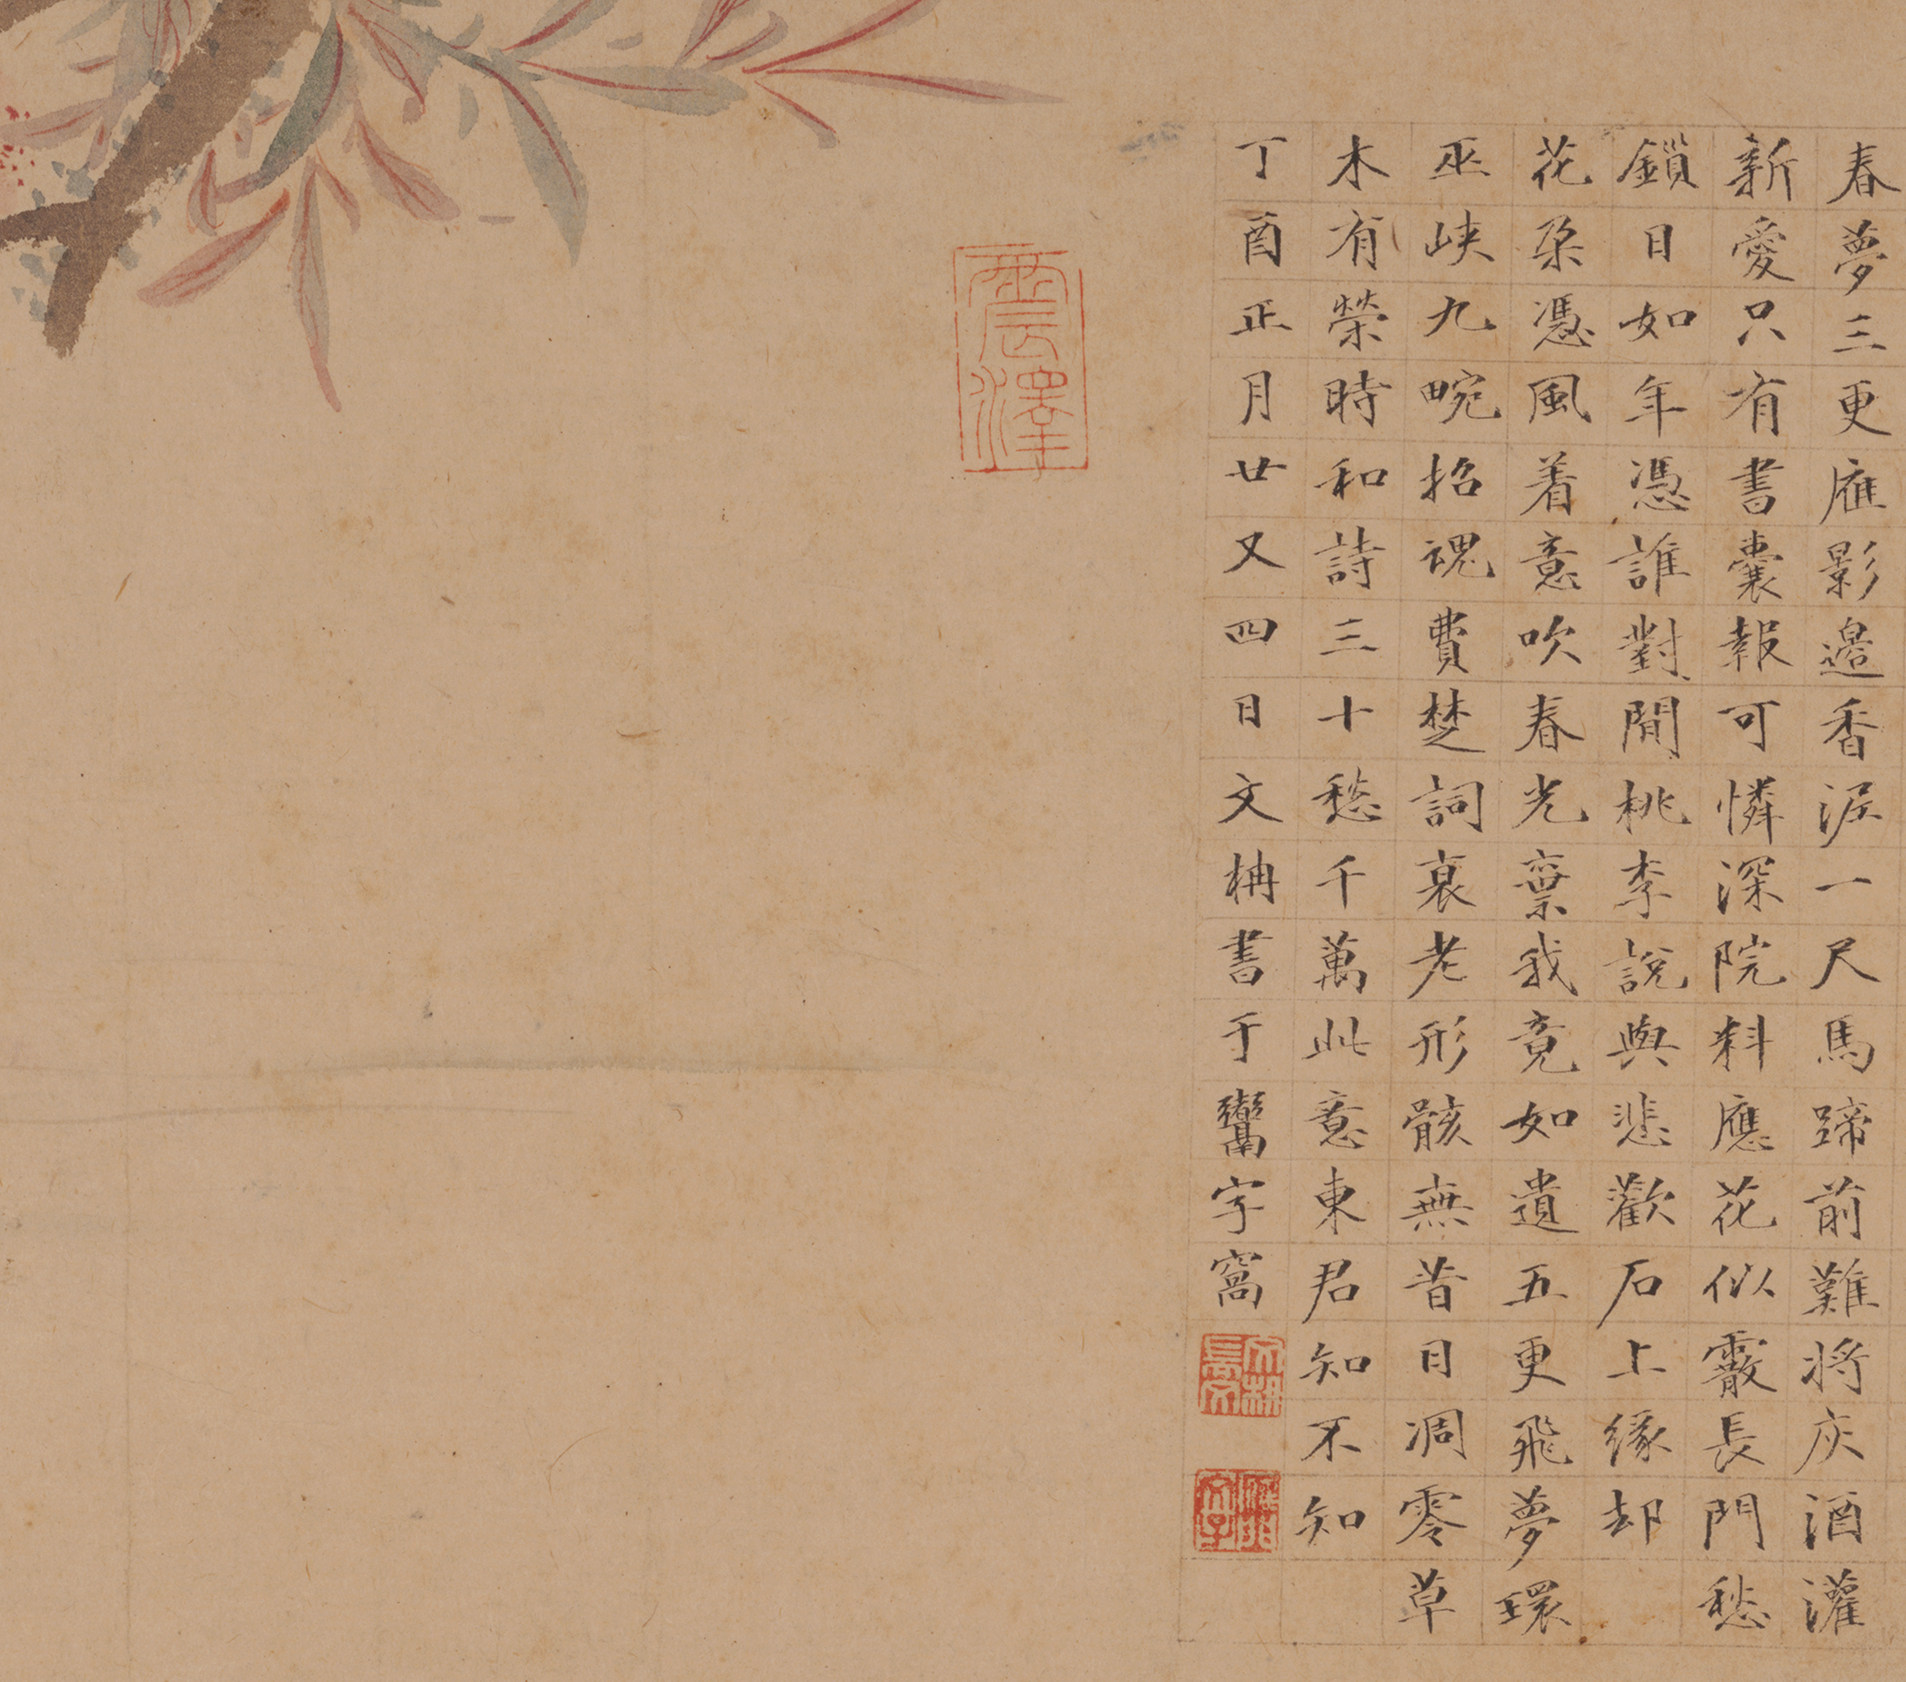 春夢三更雁影邉香泥一尺馬蹄前難將灰酒灌
新愛只有書囊報可憐深院料應花似霰長門愁
鎖日如年憑誰對閒桃李說與悲歡石上緣却
花朶憑風着意吹春光棄我竟如遺五更飛夢環
巫峽九畹招魂費楚詞衰老形骸無昔日凋零草
木有榮時和詩三十愁千萬此意東君知不知
丁酉正月廿又四日文枏書于鬻字窩
震澤